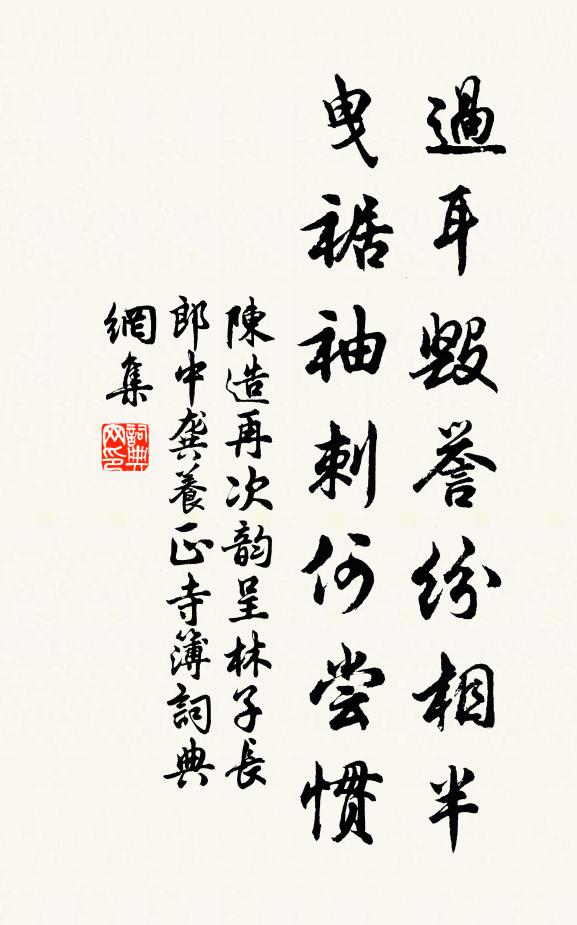 過耳毀譽紛相半
曳裾袖刺何尝慣
陳造再次韵呈林子長
郎中龔養正寺簿詞典
網集
詞典
网印